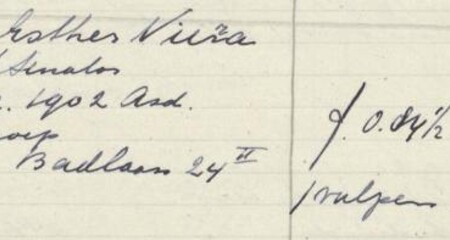 Esther Vieira
Senator
. 1902 Asd.
Badlaan 24 II
f. 0.84½
1 vulpen